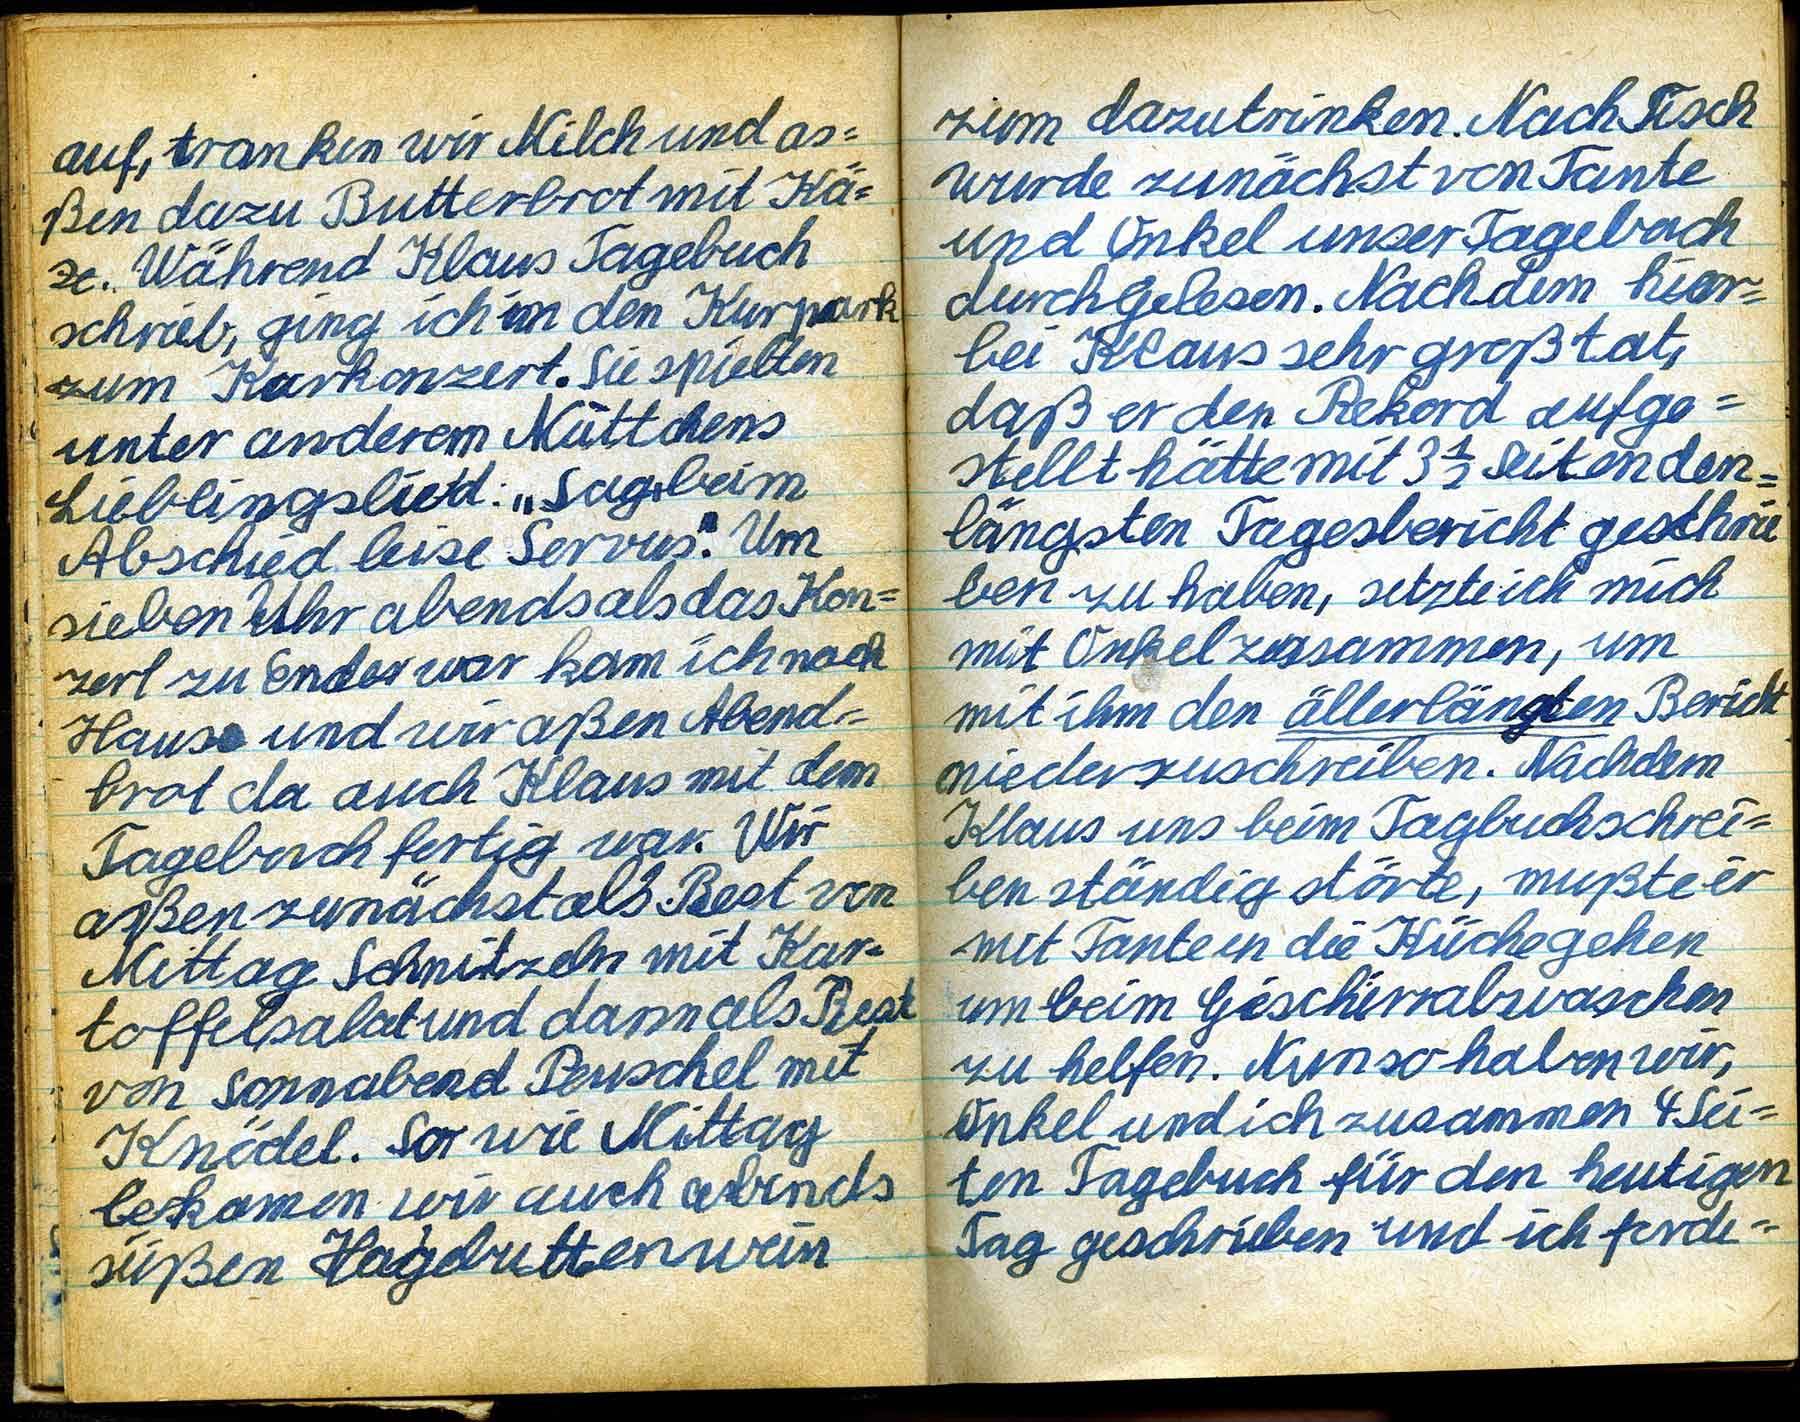 auf, tranken wir Milch und as=
ßen dazu Butterbrot mit Kä=
se. Während Klaus Tagebuch
schrieb, ging ich in den Kurpark
zum Kurkonzert. Sie spielten
unter anderem Muttchens
Lieblingslied: „Sag beim
Abschied leise Servus". Um
sieben Uhr abends als das Kon=
zert zu Ende war kam ich nach
Hause und wir aßen Abend=
brot da auch Klaus mit dem
Tagebuch fertig war. Wir
aßen zunächst als Rest von
Mittag Schnitzeln mit Kar=
toffelsalat und dann als Rest
von Sonnabend Peuschel mit
Knödel. So wie Mittag
bekamen wir auch abends
süßen Hagebuttenwein
zum dazutrinken. Nach Tisch
wurde zunächst von Tante
und Onkel unser Tagebuch
durchgelesen. Nachdem hier=
bei Klaus sehr groß tat,
daß er den Rekord aufge=
stellt hätte mit 3 ½ Seiten den=
längsten Tagesbericht geschrie
ben zu haben, setzte ich mich
mit Onkel zusammen, um
mit ihm den ällerlängten Bericht
niederzuschreiben. Nachdem
Klaus uns beim Tagbuchschrei=
ben ständig störte, mußte er
mit Tante in die Küche gehen
um beim Geschirrabwaschen
zu helfen. Nun so haben wir,
Onkel und ich zusammen 4 Sei=
ten Tagebuch für den heutigen
Tag geschrieben und ich forde=